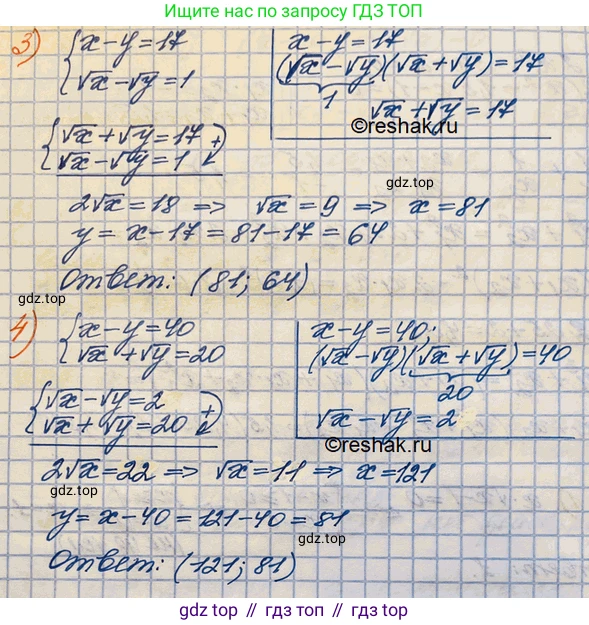 Ищите нас по запросу ГДЗ ТОП
3) { x - y = 17
√x - √y = 1
x - y = 17
(√x - √y)(√x + √y) = 17
1
√x + √y = 17
©reshak.ru
{ √x + √y = 17
√x - √y = 1 +
gdz.top
2√x = 18 ⇒ √x = 9 ⇒ x = 81
y = x - 17 = 81 - 17 = 64
Ответ: (81; 64)
gdz.top
4) { x - y = 40
√x + √y = 20
x - y = 40;
(√x - √y)(√x + √y) = 40
20
√x - √y = 2
gdz.top
©reshak.ru
{ √x - √y = 2
√x + √y = 20 +
2√x = 22 ⇒ √x = 11 ⇒ x = 121
gdz.top
y = x - 40 = 121 - 40 = 81
Ответ: (121; 81)
gdz.top
gdz.top // гдз топ // gdz.top